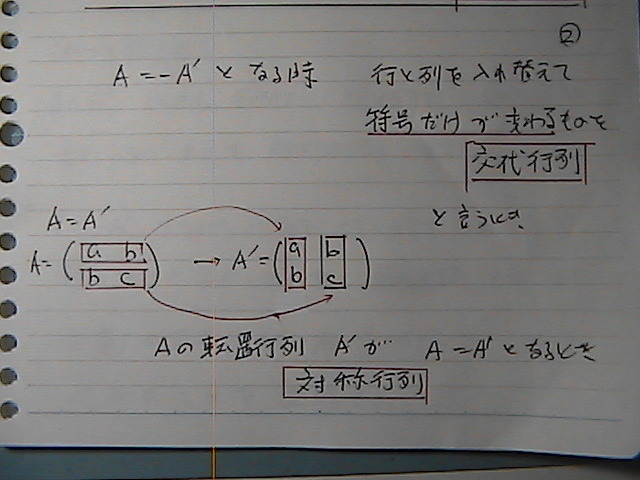 ②
A = -A' となる時 行と列を入れ替えて
符号だけが変わるものを
交代行列
と言うとき
A = A'
A = ( a b
b c ) → A' = ( a b
b c )
Aの転置行列 A'が A = A'となるとき
対称行列